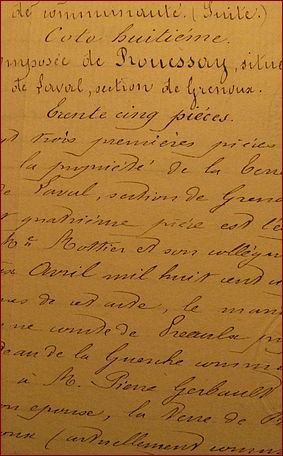 de communauté. (Suite.)
Cote huitième.
omposée de Rouessay, situé
de Laval, section de Grenoux.
Trente cinq pièces.
t trois premières pièces
la propriété de la Terre
Laval, section de Greno
t quatrième pièce est l'e
Me Mottier et son collègue
Avril mil huit cent
de cet acte, le mar
ne comte de Preaulx p
eau de la Guerche comme
à M. Pierre Gerbault
on épouse, la terre de
oux (actuellement comm